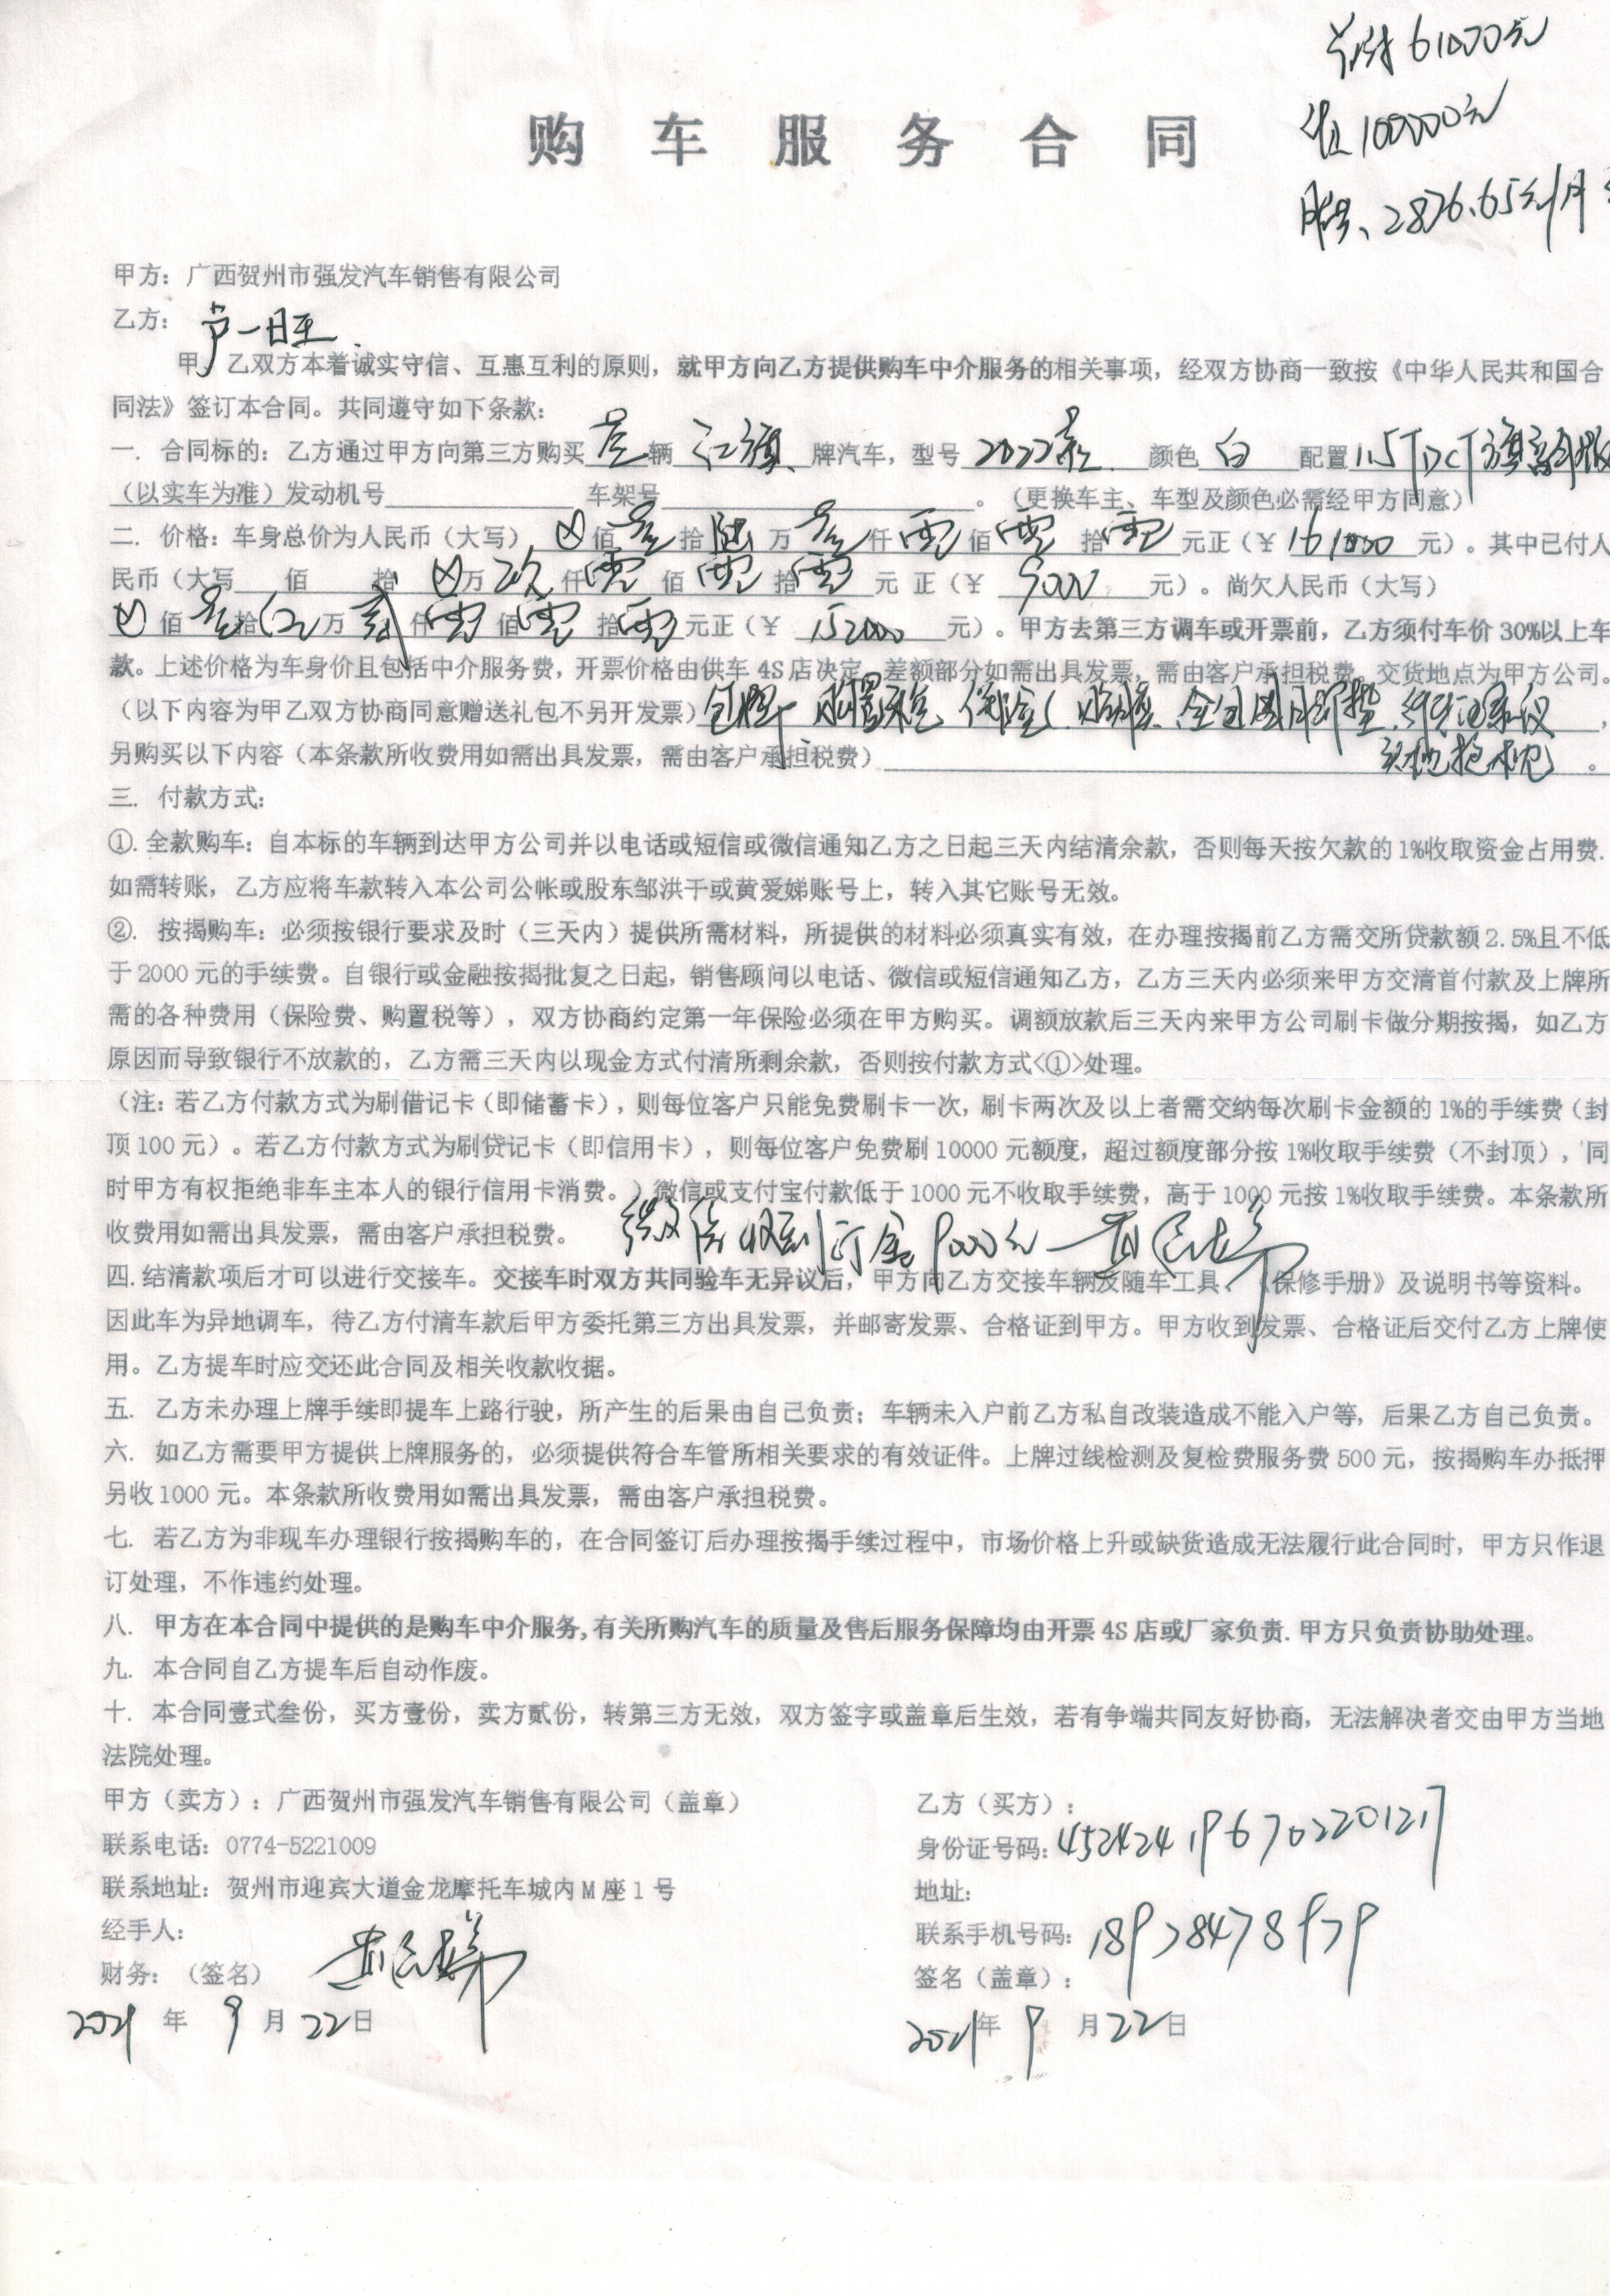 首付61000元
贷100000元
月供、2876.65元/月
购车服务合同
甲方：广西贺州市强发汽车销售有限公司
乙方：卢一旺
甲、乙双方本着诚实守信、互惠互利的原则，就甲方向乙方提供购车中介服务的相关事项，经双方协商一致按《中华人民共和国合
同法》签订本合同。共同遵守如下条款：
一. 合同标的：乙方通过甲方向第三方购买壹辆红旗牌汽车，型号2022款 颜色白 配置1.5TDCT旗
（以实车为准）发动机号 车架号 。（更换车主、车型及颜色必需经甲方同意）
二. 价格：车身总价为人民币（大写）佰壹拾陆万壹仟零佰零拾零元正（¥161000元）。其中已付人
民币（大写 佰 拾 万玖仟零佰零拾零元 正（¥9000元）。尚欠人民币（大写）
佰壹拾伍万贰仟零佰零拾零元正（¥152000元）。甲方去第三方调车或开票前，乙方须付车价30%以上车
款。上述价格为车身价且包括中介服务费，开票价格由供车4S店决定，差额部分如需出具发票，需由客户承担税费。交货地点为甲方公司。
（以下内容为甲乙双方协商同意赠送礼包不另开发票）包牌、购置税、保险、贴膜、全包围脚垫、行车记录仪，
另购买以下内容（本条款所收费用如需出具发票，需由客户承担税费） 抱枕。
三. 付款方式：
①. 全款购车：自本标的车辆到达甲方公司并以电话或短信或微信通知乙方之日起三天内结清余款，否则每天按欠款的1%收取资金占用费.
如需转账，乙方应将车款转入本公司公帐或股东邹洪干或黄爱娣账号上，转入其它账号无效。
②. 按揭购车：必须按银行要求及时（三天内）提供所需材料，所提供的材料必须真实有效，在办理按揭前乙方需交所贷款额2.5%且不低
于2000元的手续费。自银行或金融按揭批复之日起，销售顾问以电话、微信或短信通知乙方，乙方三天内必须来甲方交清首付款及上牌所
需的各种费用（保险费、购置税等），双方协商约定第一年保险必须在甲方购买。调额放款后三天内来甲方公司刷卡做分期按揭，如乙方
原因而导致银行不放款的，乙方需三天内以现金方式付清所剩余款，否则按付款方式<①>处理。
（注：若乙方付款方式为刷借记卡（即储蓄卡），则每位客户只能免费刷卡一次，刷卡两次及以上者需交纳每次刷卡金额的1%的手续费（封
顶100元）。若乙方付款方式为刷贷记卡（即信用卡），则每位客户免费刷10000元额度，超过额度部分按1%收取手续费（不封顶），同
时甲方有权拒绝非车主本人的银行信用卡消费。）微信或支付宝付款低于1000元不收取手续费，高于1000元按1%收取手续费。本条款所
收费用如需出具发票，需由客户承担税费。 微信收到订金9000元 黄爱娣
四. 结清款项后才可以进行交接车。交接车时双方共同验车无异议后，甲方向乙方交接车辆及随车工具、《保修手册》及说明书等资料。
因此车为异地调车，待乙方付清车款后甲方委托第三方出具发票，并邮寄发票、合格证到甲方。甲方收到发票、合格证后交付乙方上牌使
用。乙方提车时应交还此合同及相关收款收据。
五. 乙方未办理上牌手续即提车上路行驶，所产生的后果由自己负责；车辆未入户前乙方私自改装造成不能入户等，后果乙方自己负责。
六. 如乙方需要甲方提供上牌服务的，必须提供符合车管所相关要求的有效证件。上牌过线检测及复检费服务费500元，按揭购车办抵押
另收1000元。本条款所收费用如需出具发票，需由客户承担税费。
七. 若乙方为非现车办理银行按揭购车的，在合同签订后办理按揭手续过程中，市场价格上升或缺货造成无法履行此合同时，甲方只作退
订处理，不作违约处理。
八. 甲方在本合同中提供的是购车中介服务,有关所购汽车的质量及售后服务保障均由开票4S店或厂家负责.甲方只负责协助处理。
九. 本合同自乙方提车后自动作废。
十. 本合同壹式叁份，买方壹份，卖方贰份，转第三方无效，双方签字或盖章后生效，若有争端共同友好协商，无法解决者交由甲方当地
法院处理。
甲方（卖方）：广西贺州市强发汽车销售有限公司（盖章） 乙方（买方）：
联系电话：0774-5221009 身份证号码：452424196702201217
联系地址：贺州市迎宾大道金龙摩托车城内M座1号 地址：
经手人： 联系手机号码：18978478979
财务：（签名）黄爱娣 签名（盖章）：
2021年9月22日 2021年9月22日